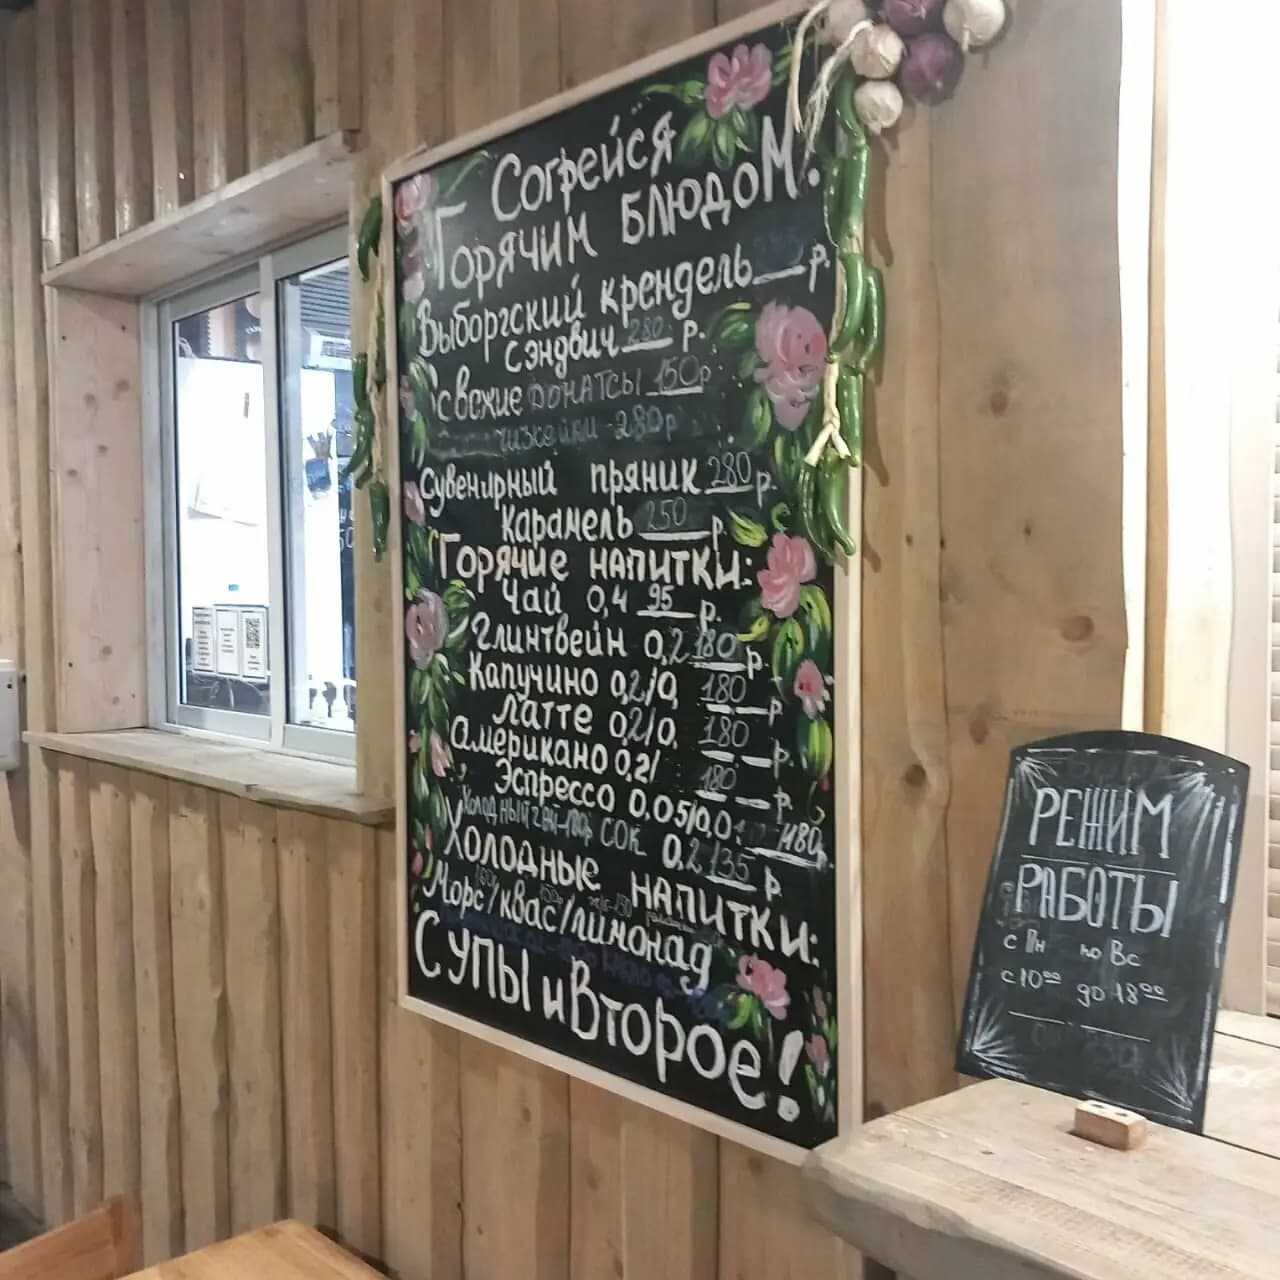 Согрейся
Горячим блюдом:
Выборгский крендель р.
Сэндвич 280 р.
Свежие донатсы 150р
чизкейки - 280р
Сувенирный пряник 280 р.
Карамель 250 р.
Горячие напитки:
Чай 0,4 95 р.
Глинтвейн 0,2 180 р.
Капучино 0,2/0, 180 р.
Латте 0,2/0. 180 р.
Американо 0,2/ 180 р.
Эспрессо 0,05/0,0 180р.
Холодный чай-180р Сок 0,2 135 р
Холодные напитки:
Морс/квас/лимонад
Супы и Второе!
РЕЖИМ
РАБОТЫ
с Пн по Вс
с 10⁰⁰ до 18⁰⁰